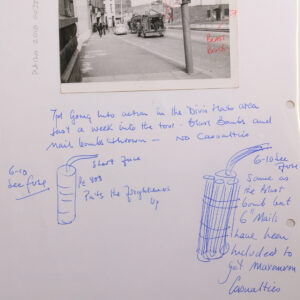 BLAST
BOMB
7pl Going into action in the Divis Flats area
Just a week into the tour - Blast Bombs and
Nail bombs thrown - No Casualties
6-10
Sec fuse
Short fuse
Pe 808
Puts the frighteners
up
6-10 Sec
fuse
Same as
the blast
bomb but
6" Nails
have been
included to
get maximum
Casualties